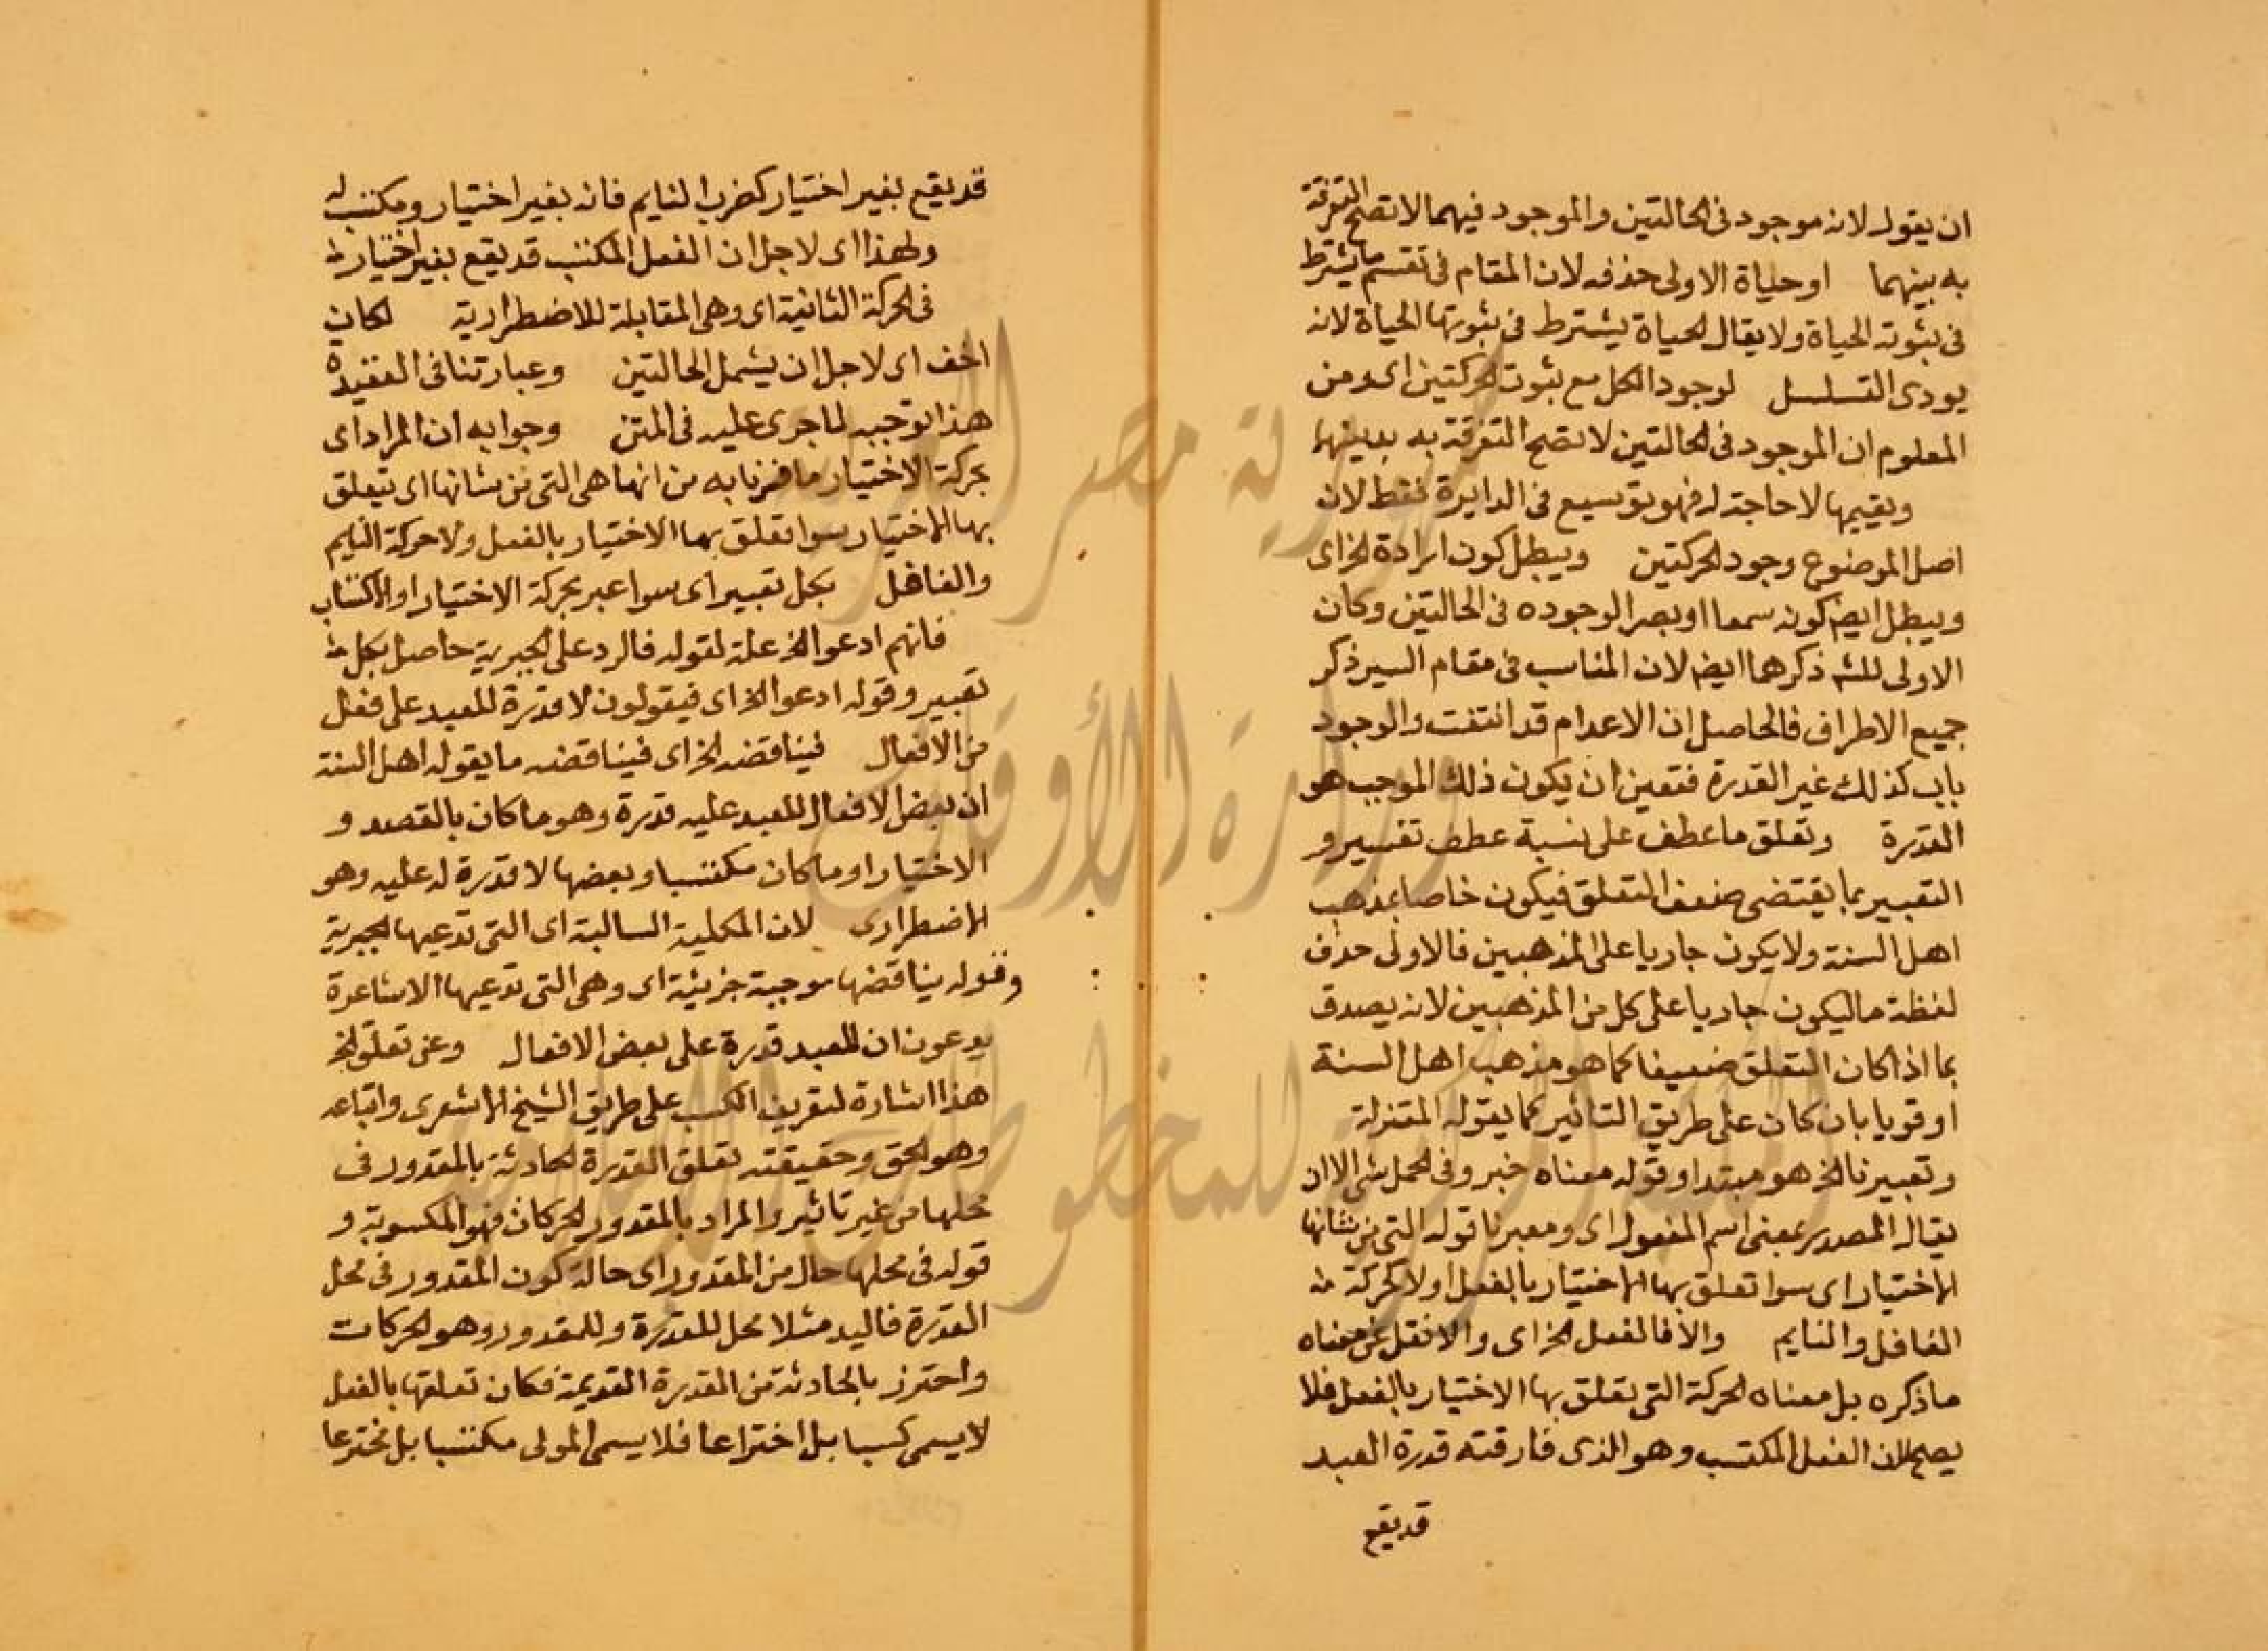 ان يقول لانه موجود في الحالتين والموجود فيهما لا تصلح التفرقة
به بينهما او حياة الاولى حذفه لان المقام في تقسيم ما يشترط
في ثبوته الحياة ولا يقال الحياة يشترط في ثبوتها الحياة لانه
يودى التسلسل لوجود الكل مع ثبوت الحركتين اى ومن
المعلوم ان الموجود في الحالتين لا تصح التفرقة به بينهما
وبقيمها لا حاجة له فهو توسيع في الدايرة فقط لان
اصل الموضوع وجود الحركتين ويبطل كون ارادة الخ اى
ويبطل ايضم كونه سمعا او بصرا لوجوده في الحالتين وكان
الاولى للشم ذكرهما ايضم لان المناسب في مقام السير ذكر
جميع الاطراف فالحاصل ان الاعدام قد انتفت والوجود
باب كذلك غير القدرة فتعين ان يكون ذلك الموجب هو
القدرة وتعلق ما عطف على نسبة عطف تفسير و
التعبير بما يقتضى ضعف التعلق فيكون خاصا بمذهب
اهل السنة ولا يكون جاريا على المذهبين فالاولى حذف
لفظة ما ليكون جاريا على كل من المذهبين لانه يصدق
بما اذا كان التعلق ضعيفا كما هو مذهب اهل السنة
او قويا بان كان على طريق التاثير كما يقوله المعتزلة
وتعبيرنا الخ هو مبتدا وقوله معناه خبر وفي الحمل شى الا ان
يقال المصدر بمعنى اسم المفعول اى ومعبرنا قوله التى من شانها
الاختيار اى سوا تعلق بها الاختيار بالفعل او لا كحركة
الغافل والنايم والا فالفعل الخ اى والا نقل عن معناه
ماذكره بل معناه الحركة التى تعلق بها الاختيار بالفعل فلا
يصح لان الفعل المكتسب وهو الذى فارقته قدرة العبد
قد يقع
قد يقع بغير اختيار كضرب النايم فانه بغير اختيار ومكتسب له
ولهذا اى لاجل ان الفعل المكتسب قد يقع بغير اختيار
في الحركة الثانية اى وهى المقابلة للاضطرارية لكان
اخف اى لاجل ان يشمل الحالتين وعبارتنا في العقيدة
هذا توجيه لما جرى عليه في المتن وجوابه ان المراد اى
بحركة الاختيار ما فسرنا به من انها هى التى من شانها اى يتعلق
بها الاختيار سوا تعلق بها الاختيار بالفعل ولا حركة النايم
والغافل بكل تعبير اى سوا عبر بحركة الاختيار او الاكتساب
فانهم ادعوا الخ علة لقوله فالرد على الجبرية حاصل بكل
تعبير وقوله ادعوا الخ اى فيقولون لا قدرة للعبد على فعل
من الافعال فيناقضه الخ اى فيناقضه ما يقوله اهل السنة
ان بعض الافعال للعبد عليه قدرة وهو ما كان بالقصد و
الاختيار او ما كان مكتسبا وبعضها لا قدرة له عليه وهو
الاضطرارى لان الكلية السالبة اى التى تدعيها الجبرية
وقوله يناقضها موجبة جزئية اى وهى التى تدعيها الاشاعرة
يدعون ان للعبد قدرة على بعض الافعال وعن تعلق الخ
هذا اشارة لتعريف الكسب على طريق الشيخ الاشعرى واتباعه
وهو الحق وحقيقته تعلق القدرة الحادثة بالمقدور في
محلها من غير تاثير والمراد بالمقدور الحركات فهو المكسوبة و
قوله في محلها حال من المقدور اى حالة كون المقدور في محل
القدرة فاليد مثلا محل للقدرة وللمقدور وهو الحركات
واحترز بالحادثة من القدرة القديمة فكان تعلقها بالفعل
لا يسمى كسبا بل اختراعا فلا يسمى المولى مكتسبا بل مخترعا
جمهورية مصر العربية
وزارة الأوقاف
المكتبة المركزية للمخطوطات الإسلامية